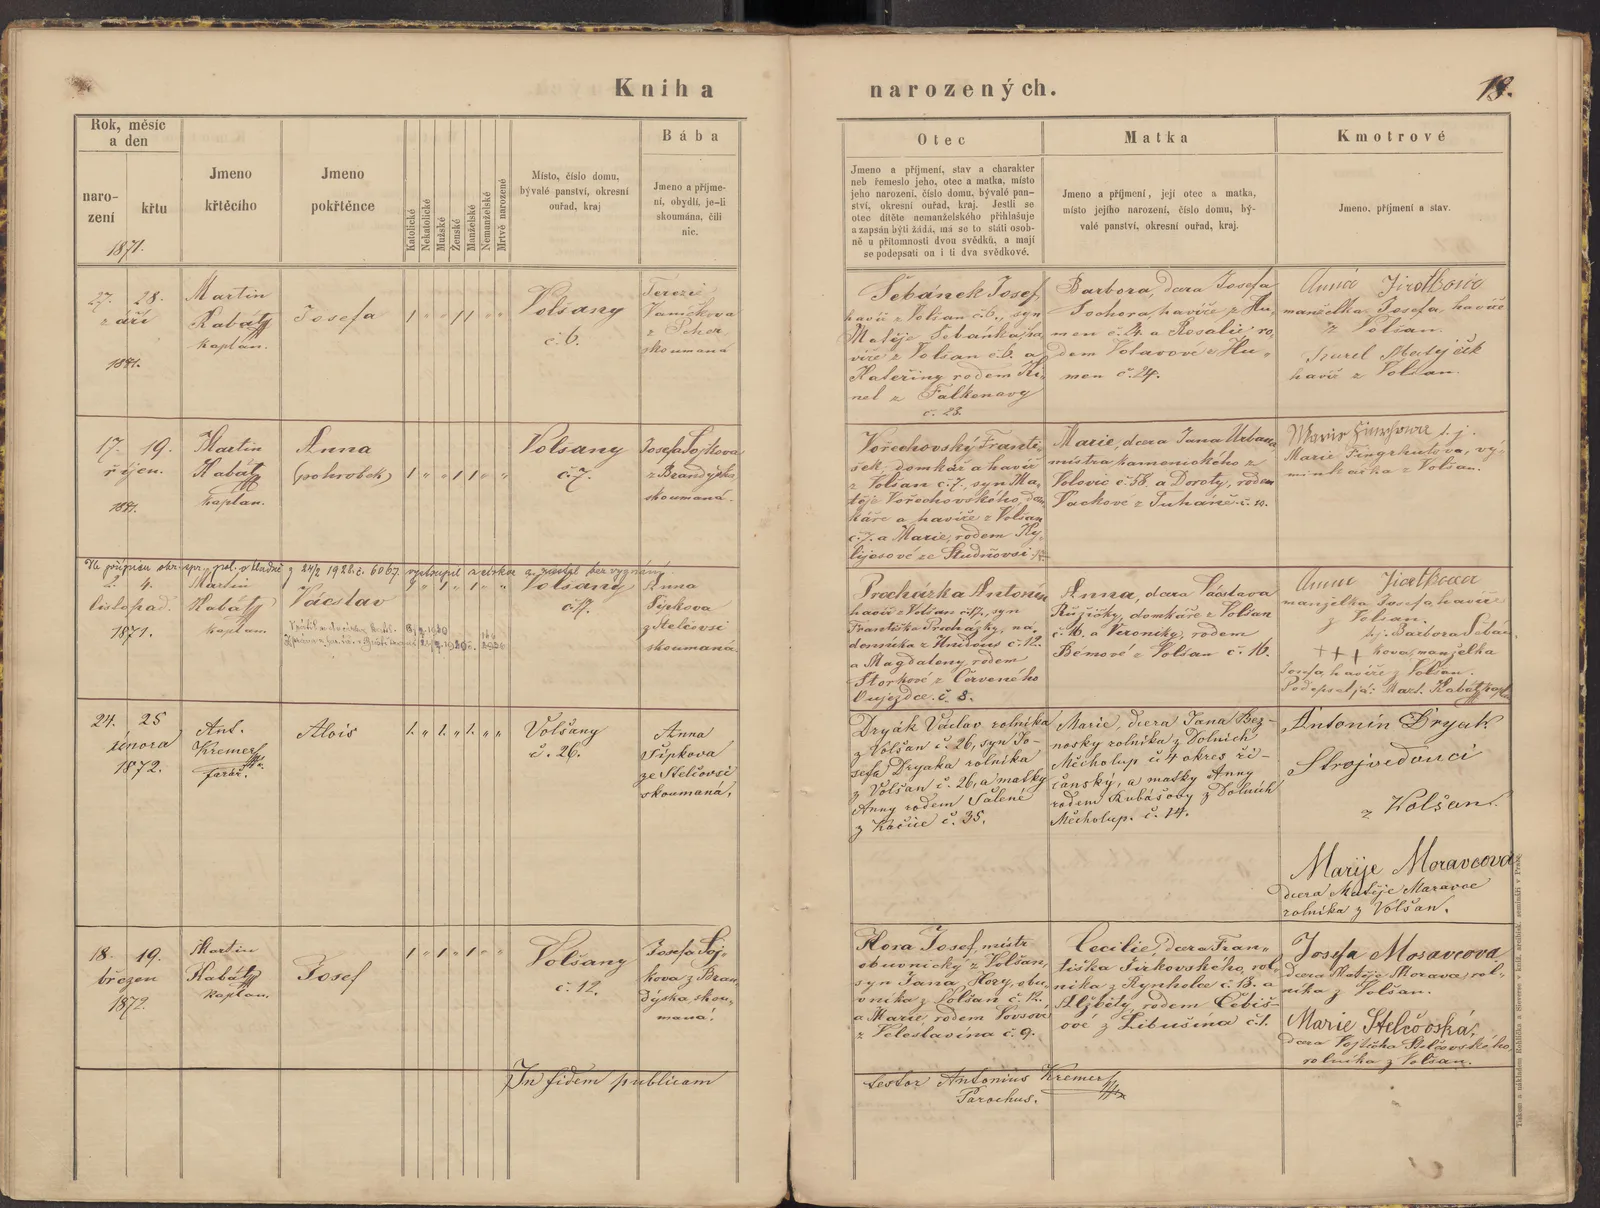 Kniha
narozených.
13.
Rok, měsíc
a den
naro-
zení
křtu
1871.
Jmeno
křtěcího
Jmeno
pokřtěnce
Katolické
Nekatolické
Mužské
Ženské
Manželské
Nemanželské
Mrtvě narozené
Místo, číslo domu,
bývalé panství, okresní
ouřad, kraj
Bába
Jmeno a příjme-
ní, obydlí, je-li
skoumána, čili
nic.
Otec
Jmeno a příjmení, stav a charakter
neb řemeslo jeho, otec a matka, místo
jeho narození, číslo domu, bývalé pan-
ství, okresní ouřad, kraj. Jestli se
otec dítěte nemanželského přihlašuje
a zapsán býti žádá, má se to státi osob-
ně u přítomnosti dvou svědků, a mají
se podepsati on i ti dva svědkové.
Matka
Jmeno a příjmení, její otec a matka,
místo jejího narození, číslo domu, bý-
valé panství, okresní ouřad, kraj.
Kmotrové
Jmeno, příjmení a stav.
27. 28.
září
1871.
Martin
Kabát
kaplan.
Josefa
Volšany
č. 6.
Terezi
Vaníčkova
z
skoumaná
Šebánek Josef,
havíř z Volšan č. 6., syn
Matěje Šebánka, ha-
víře z Volšan č. 6. a
Kateřiny rodem Ki-
nel z Falkenavy
č. 23.
Barbora, dcera Josefa
Sochora, havíře z Hu-
men č. 24. a Rosalie, ro-
dem Votavové z Hu-
men č. 24.
Anna Jirotkova
manželka Josefa, havíře
z Volšan.
Karel Matějček
havíř z Volšan.
17. 19.
říjen.
1871.
Martin
Kabát
kaplan.
Anna
(pohrobek)
Volšany
č. 7.
Josefa Sojkova
z Brandýska,
skoumaná.
Vořechovský Franti-
šek, domkář a havíř
z Volšan č. 7., syn Ma-
těje Vořechovského, dom-
káře a havíře z Volšan
č. 7. a Marie, rodem
ze Studňovsi
Marie, dcera Jana Urbana,
mistra kamenického z
Volovic č. 58. a Doroty, rodem
Vackové z Tuháně č. 10.
Marie
Marie Fingrhutova, vý-
minkářka z Volšan.
Na přípisu okr. spr. pol. v Kladně z 24/2 1921 č. 6067. vystoupil z církve a zůstal bez vyznání
2. 4.
listopad.
1871.
Martin
Kabát
kaplan.
Václav
Volšany
Anna
Šípkova
z Stelčovsi
skoumaná.
Procházka Antonín
havíř z Volšan syn
Františka Procházky, ná-
denníka z Hnidous č. 12.
a Magdaleny, rodem
Štorkové z Červeného
Oujezdce. č. 8.
Anna, dcera Václava
Růžičky, domkáře z Volšan
č. 16. a Veroniky, rodem
Bémové z Volšan č. 16.
Anna Jirotkova
manželka Josefa havíře
z Volšan.
Barbora Šebán-
+++ kova, manželka
Josefa, havíře z Volšan.
Podepsatjá: Mart. Kabát kapl.
24. 25
února
1872.
Ant.
Kremer
farář.
Alois
Volšany
č. 26.
Anna
Šípkova
ze Stelčovsi
skoumaná.
Dryák Václav rolník
z Volšan č. 26, syn Jo-
sefa Dryaka rolníka
z Volšan č. 26, a matky
Anny rodem
z Kačice č. 35.
Marie, dcera Jana Bez-
nosky rolníka z Dolních
Měcholup č. 4 okres ři-
čanský, a matky Anny
rodem Kubášovy z Dolních
Měcholup. č. 14.
Antonín Dryak
Strojvedoucí
z Volšan.
Marije Moravcova
dcera Matěje Moravce
rolníka z Volšan.
18. 19.
březen
1872.
Martin
Kabát
kaplan.
Josef
Volšany
č. 12.
Josefa Soj-
kova z Bran-
dýska, skou-
maná.
Hora Josef, mistr
obuvnický z Volšan,
syn Jana Hory, obu-
vníka z Volšan č. 12.
a Marie, rodem Vovsové
z Veleslavína č. 9.
Cecilie, dcera Fran-
tiška Jirkovského, rol-
níka z Rynholce č. 13. a
Alžběty, rodem Čebiš-
ové z Libušína č. 1.
Josefa Moravcova,
dcera Matěje Moravce, rol-
níka z Volšan.
Marie Stelčovská,
dcera Vojtěcha Stelčovského,
rolníka z Volšan.
In fidem publicam
testor Antonius Kremer
Parochus.